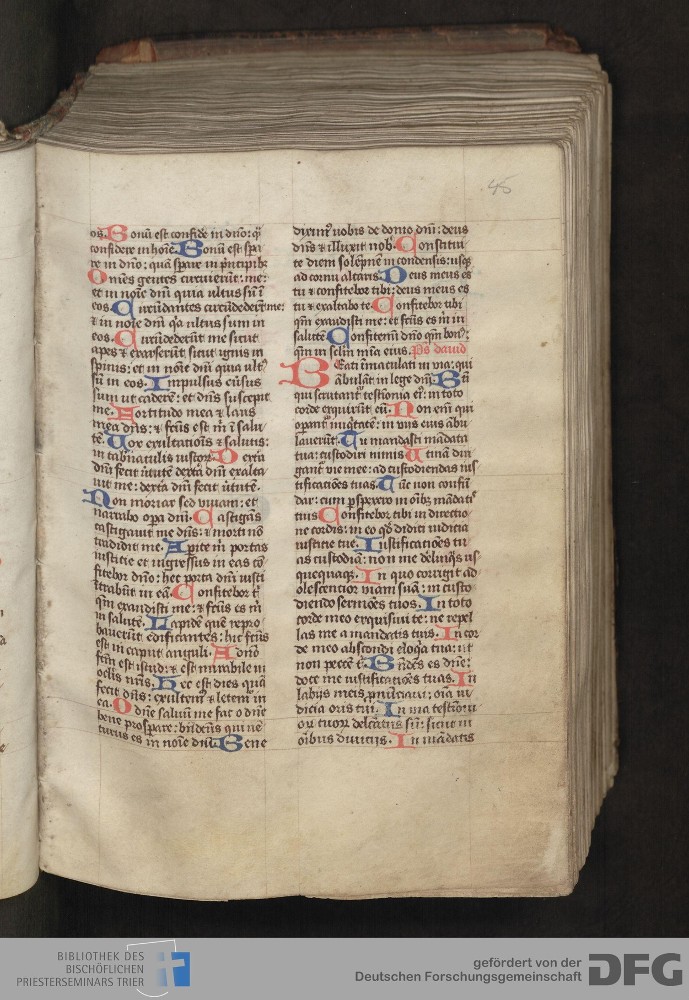 45
os. Bonū est confide in dn̄o: q̄
confidere in hoīe. Bonū est spa
re in dn̄o: quā spare in p̄ncipibꝫ
Omēs gentes circuierūt: me:
et in noīe dn̄i quia ultus sū ī
eos. Circūdantes circūdederūt me:
⁊ in noīe dn̄i qa ultus sum in
eos. Circūdederūt me sicut
apes ⁊ exarserūt sicut ignis in
spinis: et in noīe dn̄i quia ult9
sū in eos. Impulsus eūsus
sum ut caderē: et dn̄s suscepit
me. Fortitudo mea ⁊ laus
mea dn̄s: ⁊ fc̄us est m̄ ī salu
tē. Vox exultatiōis ⁊ salutis:
in tabn̄aculis iustoꝝ. Dextā
dn̄i fecit v̄tutē dexta dn̄i exalta
uit me: dexta dn̄i fecit v̄tutē.
Non moriar sed viuam: et
narrabo opa dn̄i. Castigās
castigauit me dn̄s: ⁊ morti nō
tradidit me. Apite m̄ portas
iustitie et ingressus in eas cō
fitebor dn̄o: hec porta dn̄i iusti
ītrabūt in eā. Confitebor t̄
qm̄ exaudisti me: ⁊ fc̄us es m̄
in salutē. Lapidē quē repro
bauerūt edificantes: hic fc̄us
est in caput anguli. A dn̄o
fc̄m est istud: ⁊ est mirabile in
oc̄lis nr̄is. Hec est dies quā
fecit dn̄s: exultem9 ⁊ letem̄ in
ea. O dn̄e saluū me fac o dn̄e
bene prospare: bn̄dc̄us qui uē
turus es in noīe dn̄i. Bene
diximꝰ uobis de domo dn̄i: deus
dn̄s ⁊ illuxit nob̄. Constitui
te diem solēpnē in condensis: usqꝫ
ad cornu altaris. Deus meus es
tu ⁊ confitebor tibi: deus meus es
tu ⁊ exaltabo te. Confitebor tibi
qm̄ exaudisti me: et fc̄us es m̄ in
salutē. Confitemī dn̄o qm̄ bon9:
qm̄ in sc̄lm mīa eius. Ps̄ dauid
Beati īmaculati in via: qui
ābulāt in lege dn̄i. Bt̄i
qui scrutant̄ testīonia ei9: in toto
corde exquirūt eū. Non eni qui
opant̄ iniq̄tatē: in vijs eius ābu
lauerūt. Tu mandasti mādata
tua: custodiri nimis. Utinā diri
gant̄ vie mee: ad custodiendas ius
tificatiōes tuas. Tūc non confūn
dar: cum pspexero in oīb9 mādatis
tuis. Confitebor tibi in directio
ne cordis: in eo qd̄ didici iudicia
iustitie tue. Iustificatiōes tu
as custodiā: non me delinq̄s us
quequaqꝫ. In quo corrigit ad
olescentior viam suā: in custo
diendo sermōes tuos. In toto
corde meo exquisiui te: ne repel
las me a mandatis tuis. In cor
de meo abscondi eloq̄a tua: ut
non peccē t̄. Bn̄dc̄s es dn̄e:
doce me iustificatiōes tuas. In
labijs meis pnūciaui: oīa iu
dicia oris tui. In via testīoni
oꝝ tuoꝝ delc̄atus sū: sicut in
oībus diuitijs. In mādatis
BIBLIOTHEK DES
BISCHÖFLICHEN
PRIESTERSEMINARS TRIER
gefördert von der
Deutschen Forschungsgemeinschaft
DFG